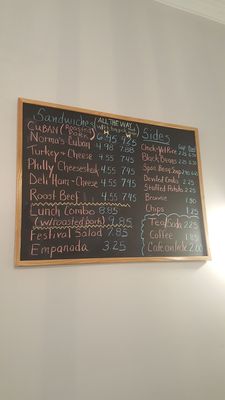 Sandwiches (ALL THE WAY
CUBAN (Roasted Pork) 6.45 9.25
Norma's Cuban 4.98 7.88
Turkey - Cheese 4.55 7.45
Philly Cheesesteak 4.55 7.45
Deli Ham - Cheese 4.55 7.45
Roast Beef 4.55 7.45
Lunch Combo 8.85
(w/roasted pork) 9.85
Festival Salad 7.85
Empanada 3.25
Sides
Yellow Rice
Black Beans
Span Bean Soup
Deviled Crabs 2.25
Stuffed Potato 2.25
Brownie 1.80
Chips 1.25
Tea/Soda 2.25
Coffee
Cafe con leche 2.00